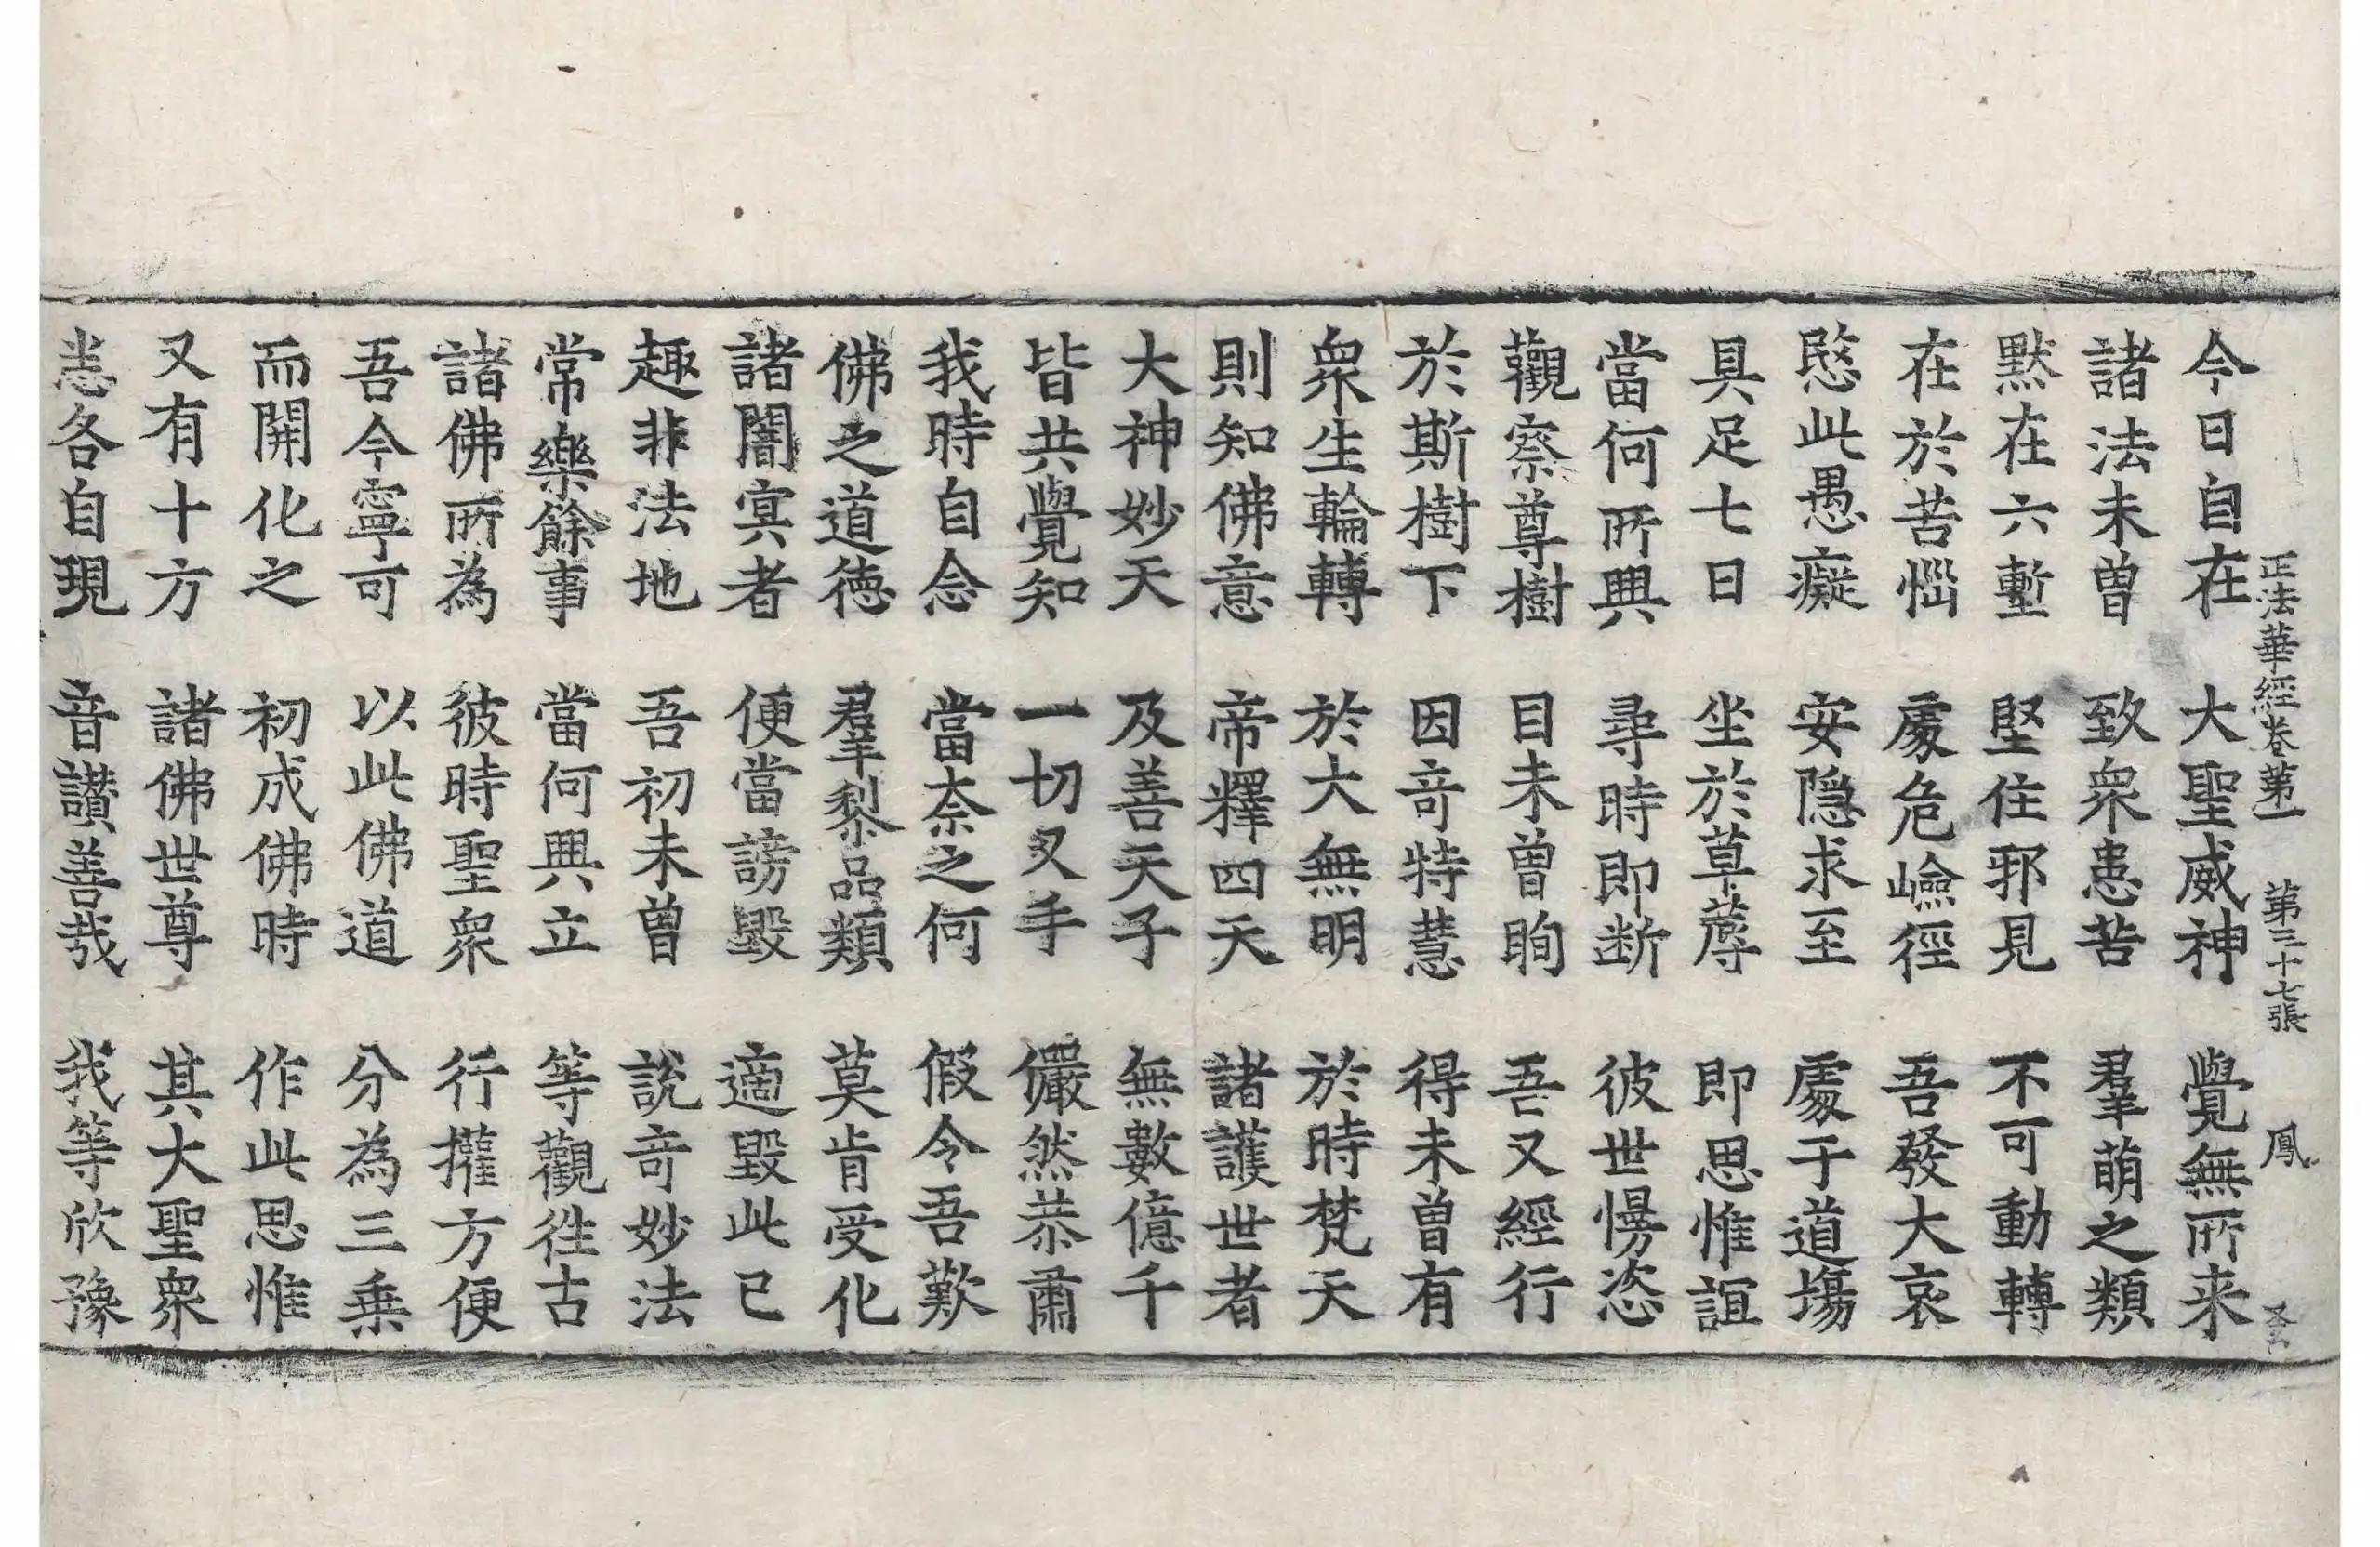 正法華經卷第一 第三十七張 鳳
今日自在 大聖威神 覺無所来
諸法未曾 致衆患苦 羣萌之類
黙在六塹 堅住邪見 不可動轉
在於苦惱 處危嶮徑 吾發大哀
愍此愚癡 安隠求至 處于道塲
具足七日 坐於草蓐 即思惟誼
當何所興 尋時即断 彼世慢恣
觀察尊樹 目未曾眴 吾又經行
於斯樹下 因竒特慧 得未曾有
衆生輪轉 於大無明 於時梵天
則知佛意 帝釋四天 諸護世者
大神妙天 及善天子 無數億千
皆共覺知 一切叉手 儼然恭肅
我時自念 當柰之何 假令吾歎
佛之道徳 羣黎品類 莫肯受化
諸闇㝠者 便當謗毀 適毀此已
趣非法地 吾初未曾 說竒妙法
常樂餘事 當何興立 等觀徃古
諸佛所為 彼時聖衆 行權方便
吾今寧可 以此佛道 分為三乗
而開化之 初成佛時 作此思惟
又有十方 諸佛世尊 其大聖衆
悉各自現 音讃善哉 我等欣豫